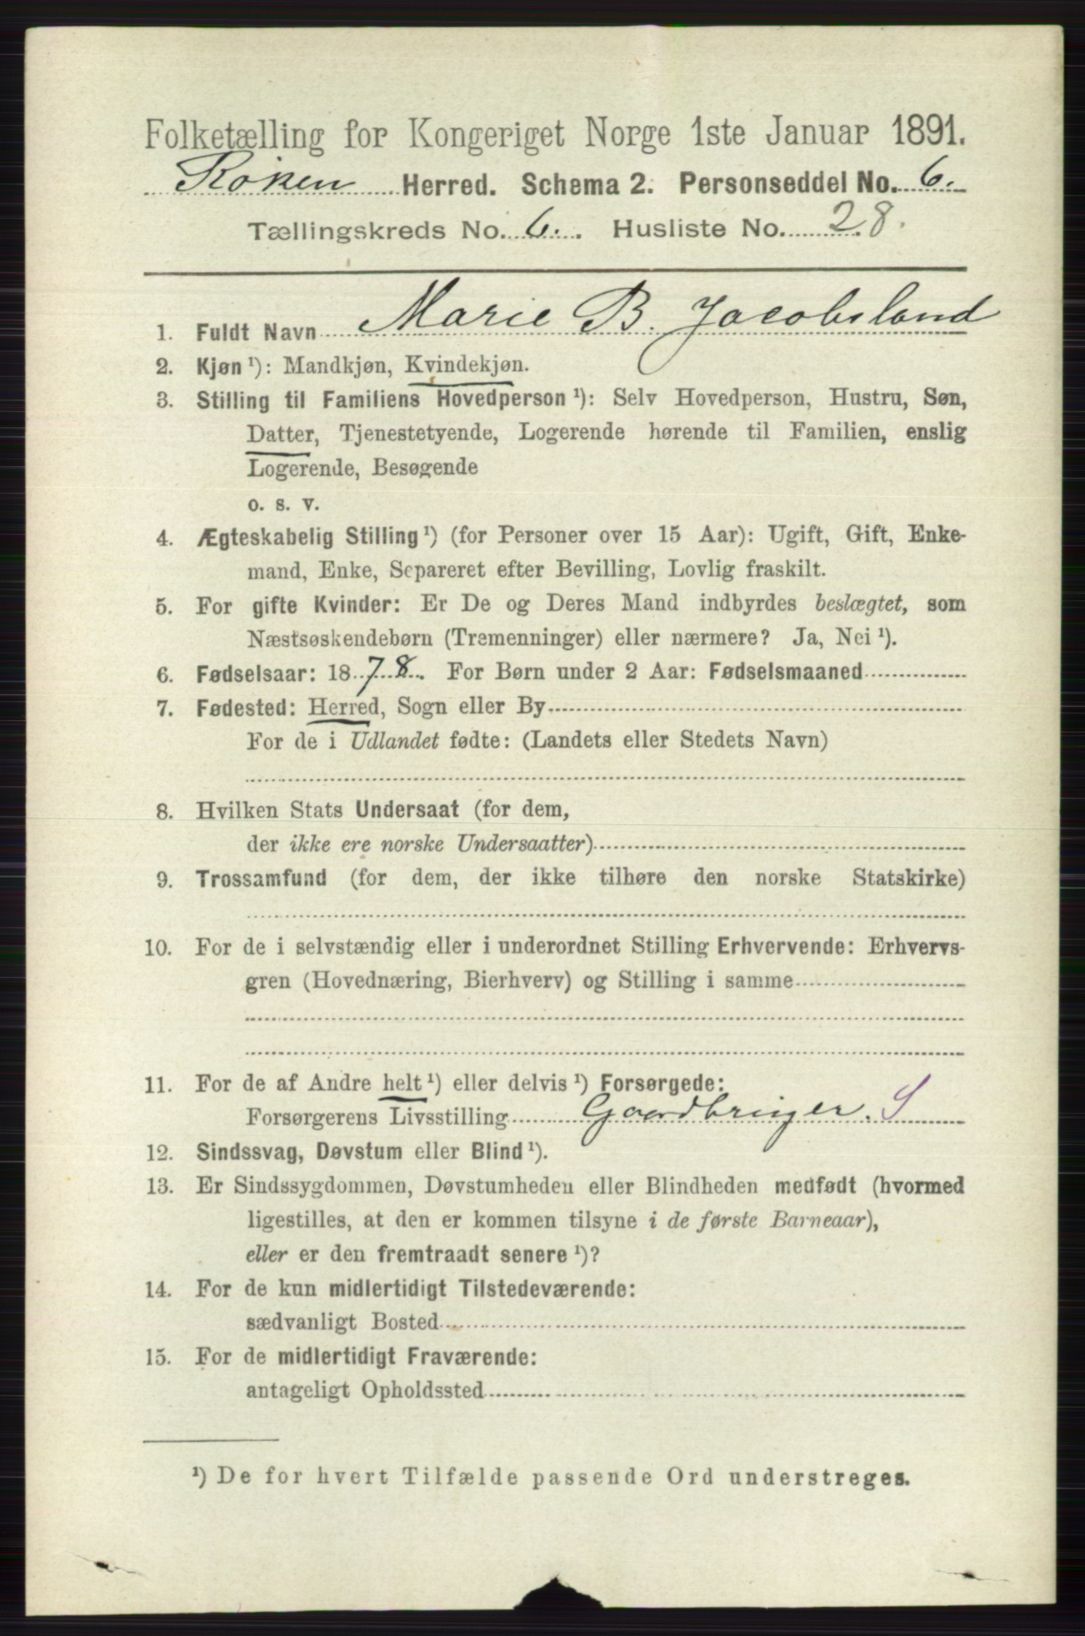 Folketælling for Kongeriget Norge 1ste Januar 1891.
Røken Herred. Schema 2. Personseddel No. 6.
Tællingskreds No. 6. Husliste No. 28.
1. Fuldt Navn Marie B. Jacobsland
2. Kjøn ¹): Mandkjøn, Kvindekjøn.
3. Stilling til Familiens Hovedperson ¹): Selv Hovedperson, Hustru, Søn,
Datter, Tjenestetyende, Logerende hørende til Familien, enslig
Logerende, Besøgende
o. s. v.
4. Ægteskabelig Stilling ¹) (for Personer over 15 Aar): Ugift, Gift, Enke-
mand, Enke, Separeret efter Bevilling, Lovlig fraskilt.
5. For gifte Kvinder: Er De og Deres Mand indbyrdes beslægtet, som
Næstsøskendebørn (Tremenninger) eller nærmere? Ja, Nei ¹).
6. Fødselsaar: 1878. For Børn under 2 Aar: Fødselsmaaned
7. Fødested: Herred, Sogn eller By
For de i Udlandet fødte: (Landets eller Stedets Navn)
8. Hvilken Stats Undersaat (for dem,
der ikke ere norske Undersaatter)
9. Trossamfund (for dem, der ikke tilhøre den norske Statskirke)
10. For de i selvstændig eller i underordnet Stilling Erhvervende: Erhvervs-
gren (Hovednæring, Bierhverv) og Stilling i samme
11. For de af Andre helt ¹) eller delvis ¹) Forsørgede:
Forsørgerens Livsstilling Gaardbruger. S
12. Sindssvag, Døvstum eller Blind ¹).
13. Er Sindssygdommen, Døvstumheden eller Blindheden medfødt (hvormed
ligestilles, at den er kommen tilsyne i de første Barneaar),
eller er den fremtraadt senere ¹)?
14. For de kun midlertidigt Tilstedeværende:
sædvanligt Bosted
15. For de midlertidigt Fraværende:
antageligt Opholdssted
¹) De for hvert Tilfælde passende Ord understreges.